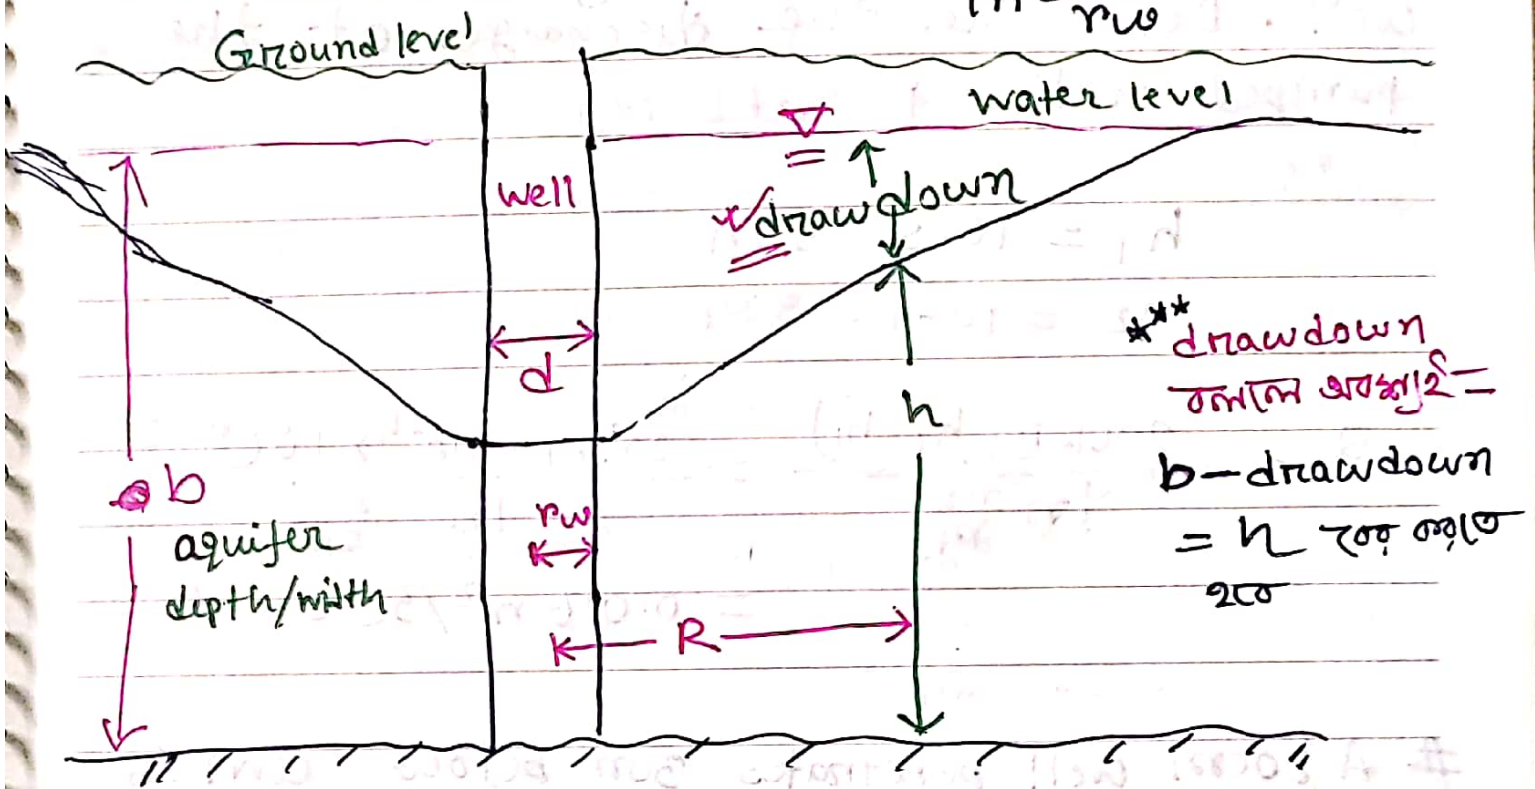 rw
Ground level
water level
well
drawdown
d
h
*** drawdown
বললে অবশ্যই =
b
b - drawdown
= h বের করতে
হবে
aquifer
depth/width
rw
R